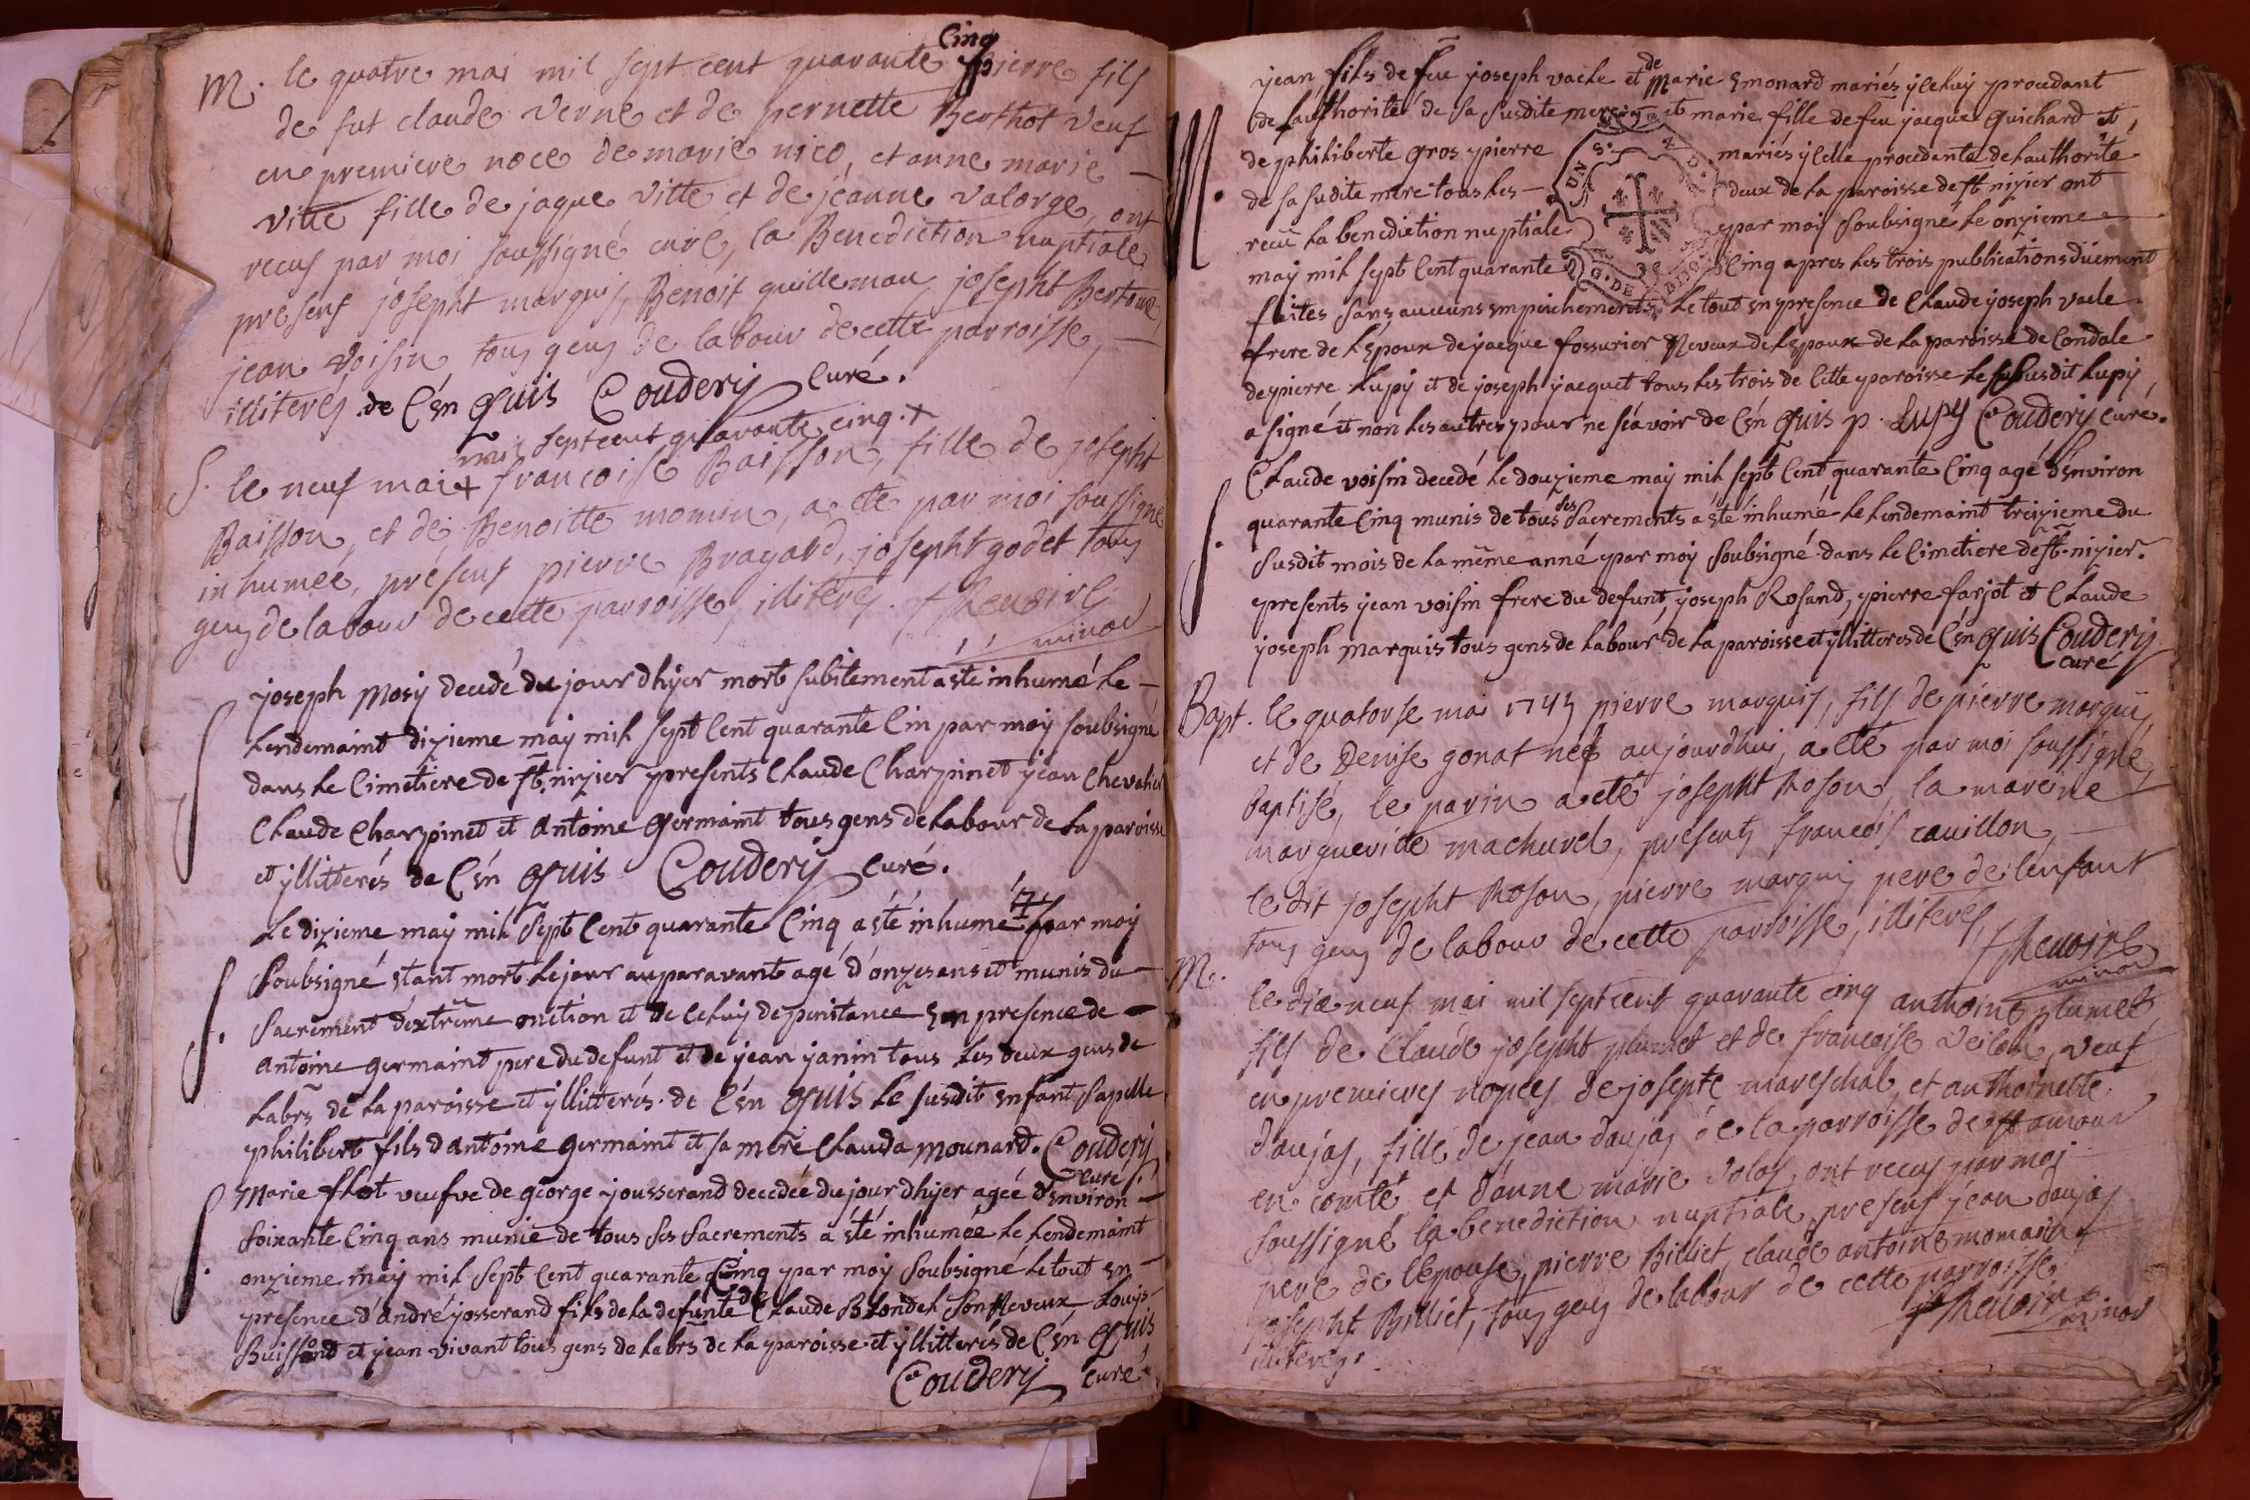 M. le quatre mai mil sept cent quarante Cinq pierre fils
de fut claude verne et de pernette Berthot veuf
en premiere noce de marie nico, et anne marie
vitte fille de jaque vitte et de jéanne valorge, ont
recus par moi soussigné curé, la Benediction nuptiale
presens josepht marquis, Benoit guillemau, josepht
jean voisin, tous gens de labour de cette parroisse,
illiterés. de Cén Quis Coudery Curé.
mil sept cent quarante cinq. +
S. le neuf mai + francoise Baisson, fille de josepht
Baisson, et de Benoitte momin, a eté par moi soussigné
inhumeé, présens pierre Brayard, josepht godet tous
gens de labour de cette parroisse, illiterés. f thenoire
minor
joseph Mosy decedé du jour dhÿer mort subitement a ésté inhumé le
lendemaint dizieme may mil sept Cent quarante Cin par moy soubsigné
dans le Cimetiere de st. nizier presents Claude Charpinet jean Chevalier
Claude Charpinet et Antoine Germaint tous gens de labour de la paroisse
et yllitterés de Cén Quis Coudery Curé.
S. Le dizieme may mil Sept Cent quarante Cinq a ésté inhumé par moy
Soubsigné étant mort le jour auparavant agé d'onzes ans et munis du
Sacrement d'extrême onction et de Celuy de penitance En presence de
Antoine germaint pere du defunt et de jean janin tous les deux gens de
labrs de la paroisse et yllitterés. de Cén Quis Le susdit Enfant s'apelle
philibert fils d'Antoine Germaint et sa mere Clauda Mounard. Coudery
Curé.
S. Marie flot veufve de George jousserand decedée du jour dhyer ageé d'Environ
Soixante Cinq ans munie de tous ses Sacrements a ésté inhumeé le lendemaint
onzieme may mil Sept Cent quarante Cinq par moy Soubsigné le tout En
presence d'André josserand fils de la defunte de Claude Blondel son Neveux Louys
Buissond et jean vivant tous gens de labrs de la paroisse et yllitterés de Cén Quis
Coudery Curé.
M. jean fils de feu joseph vacle et de Marie Emonard mariés yleluy procedant
de l'authorité de sa susdite mere et marie fille de feu jacque Guichard et
de philiberte Gros pierre mariés ylelle procedante de lauthorité
de sa sudite mere tous les deux de la paroisse de st nizier ont
recu la benediction nuptiale par moy Soubsigné le onzieme
may mil sept Cent quarante Cinq apres les trois publications düement
faites sans aucuns empechements le tout En presence de Claude joseph vacle
frere de l'Epoux de jacque fossurier Neveux de lEpoux de la paroisse de Condale
de pierre Lupy et de joseph jacquet tous les trois de Cette paroisse le susdit Lupy
a signé et non les autres pour ne scavoir de Cén Quis p. Lupy Coudery Curé.
S. Claude voisin decedé le douzieme may mil sept Cent quarante Cinq agé d'Environ
quarante Cinq munis de tous ses Sacrements a ésté inhumé le lendemaint treizieme du
susdit mois de la même anné par moy Soubsigné dans le Cimetiere de st. nizier.
presents jean voisin frere du defunt, joseph Rosand, pierre farjot et Claude
joseph Marquis tous gens de labour de la paroisse et yllitteres de Cén Quis Coudery
Curé
Bapt. le quatorse mai 1745 pierre marquis, fils de pierre marquis
et de Denise gonat neé aujourdhui, a eté par moi soussigné,
baptisé, le parin a eté josepht Roson, la mareine
marguerite machurel, presents francois cavillon,
le dit josepht Roson, pierre marquis pere de l'enfant
tous gens de labour de cette parroisse, illiterés,
f thenoire
minor
M. le dix neuf mai mil sept cent quarante cinq anthoine plumet
fils de Claude josepht plumet et de francoise veuf
en premieres nopces de josepte mareschal, et anthoinette
daujas, fille de jean daujas de la parroisse de st amour
en comté, et d'anne marie ont recus par moi
soussigné la benediction nuptiale, presens jean daujas
pere de l'epouse, pierre Billiet, claude antoine
josepht Billiet, tous gens de labour de cette parroisse
illiterés. f thenoire minor